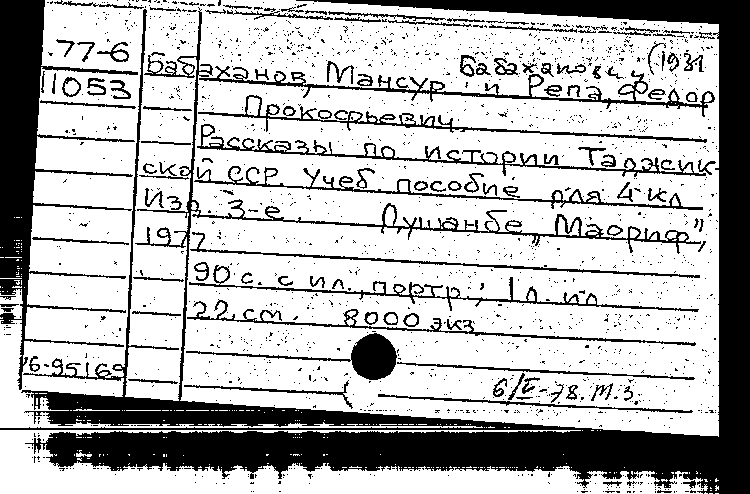 77-6
11053
Бабаханович (1931
Бабаханов, Мансур и Репа, Федор
Прокофьевич.
Рассказы по истории Таджик-
ской ССР. Учеб. пособие для 4 кл
Изд. 3-е. Душанбе, „Маориф",
1977
90 с. с ил., портр.; 1 л. ил
22 см. 8000 экз
76-95169
6/II-78. М.З.